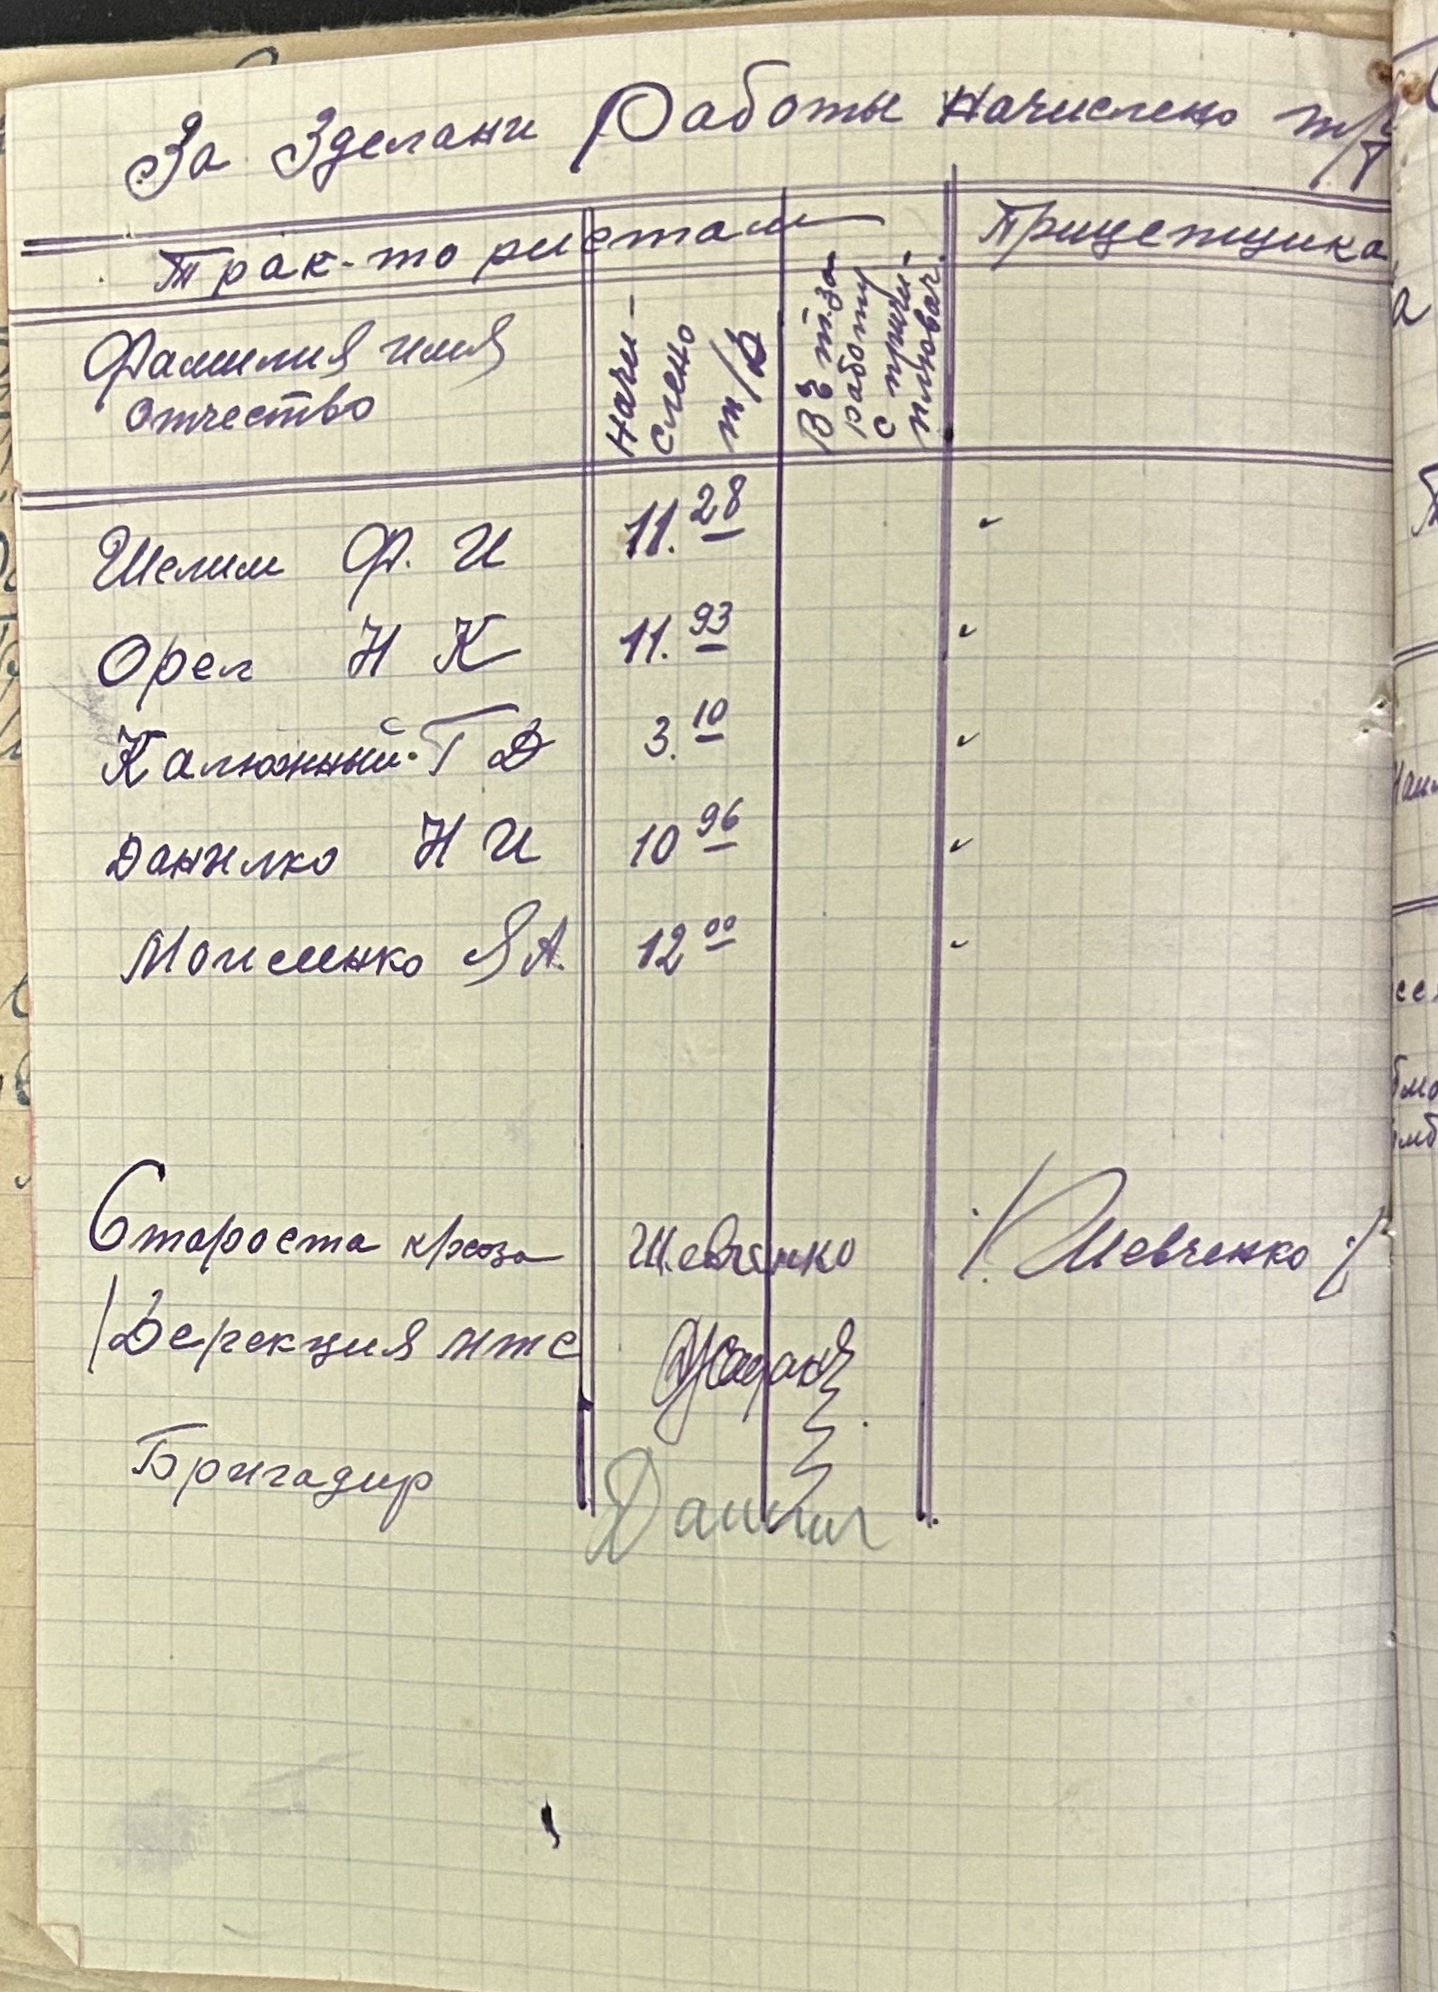 За Зделани Работы Начислено т/д
Трак-то ристам
Прицепщика
Фамилия имя
отчество
Начи-
слено
т/д
В т. за
работу
с
Шелим Ф. И 11.28
Орел Н К 11.93
Калюжный Г Д 3.10
Данилко Н И 10 96
Моисенко Я А. 12 00
Староста к/хоза Шевченко /Шевченко/
Дерекция мтс
Бригадир Данил